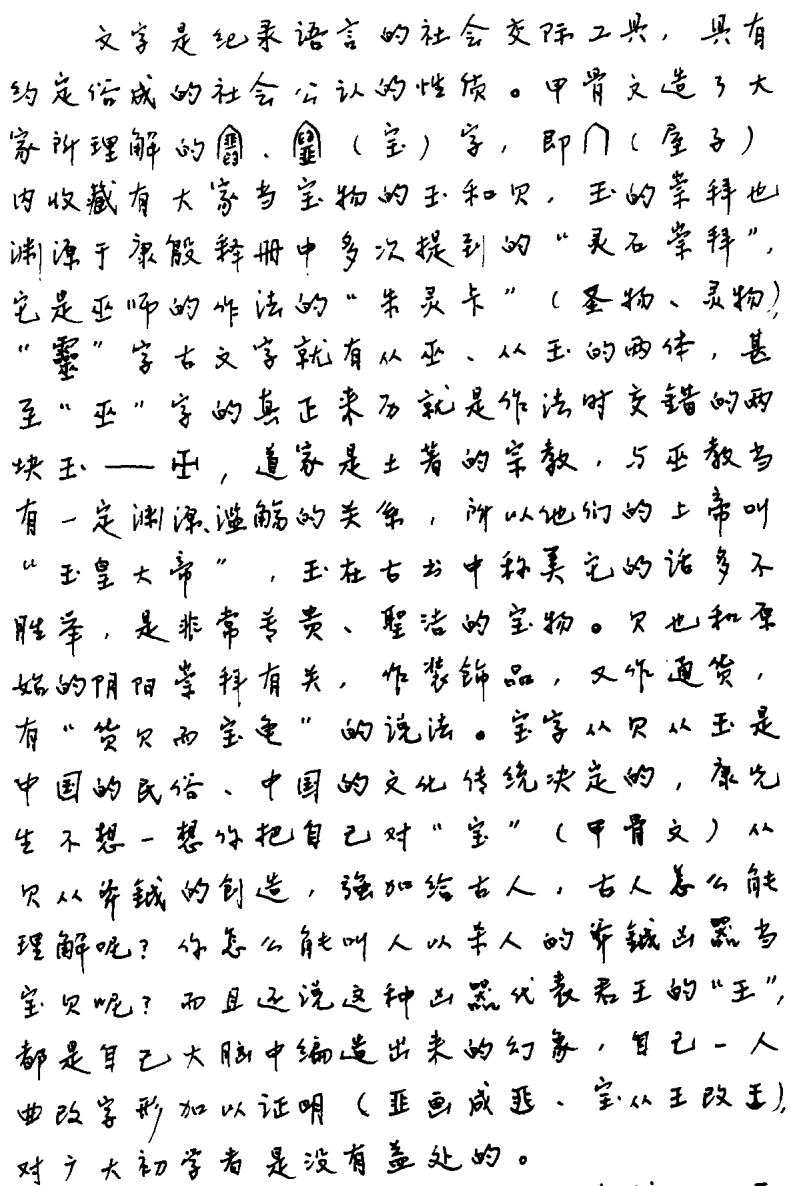 文字是纪录语言的社会交际工具，具有
约定俗成的社会公认的性质。甲骨文造了大
家所理解的、（宝）字，即（屋子）
内收藏有大家当宝物的玉和贝，玉的崇拜也
渊源于康殷释册中多次提到的“灵石崇拜”，
它是巫师的作法的“朱灵卡”（圣物、灵物），
“靈”字古文字就有从巫、从玉的两体，甚
至“巫”字的真正来历就是作法时交错的两
块玉——，道家是土著的宗教，与巫教当
有一定渊源、滥觞的关系，所以他们的上帝叫
“玉皇大帝”，玉在古书中称美它的话多不
胜举，是非常善贵、聖洁的宝物。贝也和原
始的阴阳崇拜有关，作装飾品，又作通货，
有“货贝而宝龟”的说法。宝字从贝从玉是
中国的民俗、中国的文化传统决定的，康先
生不想一想你把自己对“宝”（甲骨文）从
贝从斧鉞的创造，强加给古人，古人怎么能
理解呢？你怎么能叫人以杀人的斧鉞凶器当
宝贝呢？而且还说这种凶器代表君王的“王”，
都是自己大脑中编造出来的幻象，自己一人
曲改字形加以证明（画成、宝从玉改王），
对广大初学者是没有益处的。